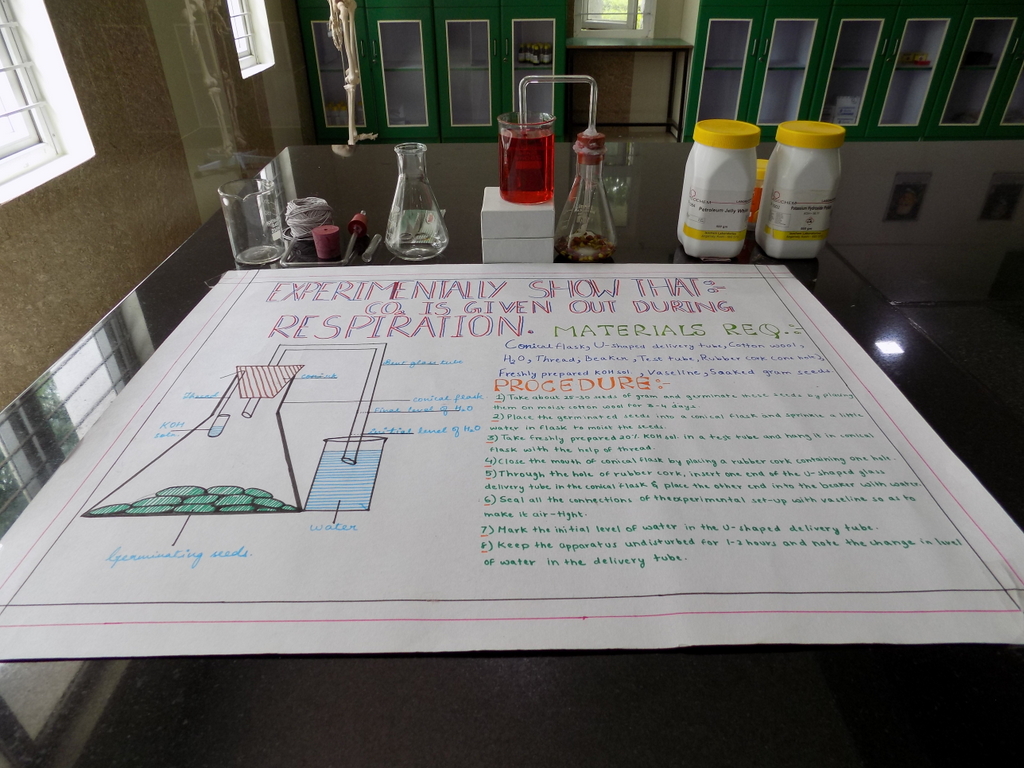 Petroleum Jelly White
Potassium Hydroxide
EXPERIMENTALLY SHOW THAT:-
CO₂ IS GIVEN OUT DURING
RESPIRATION.
MATERIALS REQ.:-
Conical flask, U-shaped delivery tube, Cotton wool,
H₂O, Thread, Beaker, Test tube, Rubber cork (one hole),
Freshly prepared KOH sol., Vaseline, Soaked gram seeds.
PROCEDURE:-
1) Take about 25-30 seeds of gram and germinate these seeds by placing
them on moist cotton wool for 3-4 days
2) Place the germinated seeds into a conical flask and sprinkle a little
water in flask to moist the seeds.
3) Take freshly prepared 20% KOH sol. in a test tube and hang it in conical
flask with the help of thread.
4) Close the mouth of conical flask by placing a rubber cork containing one hole.
5) Through the hole of rubber cork, insert one end of the U-shaped glass
delivery tube in the conical flask & place the other end into the beaker with water
6) Seal all the connections of the experimental set-up with vaseline so as to
make it air-tight.
7) Mark the initial level of water in the U-shaped delivery tube.
8) Keep the apparatus undisturbed for 1-2 hours and note the change in level
of water in the delivery tube.
Bent glass tube
Thread
conical flask
Final level of H₂O
Initial level of H₂O
KOH
soln.
water
Germinating seeds.